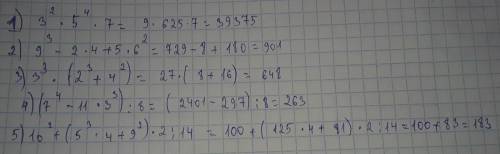 1) 3² · 5⁴ · 7 = 9 · 625 · 7 = 39375
2) 9³ - 2 · 4 + 5 · 6² = 729 - 8 + 180 = 901
3) 3³ · (2³ + 4²) = 27 · (8 + 16) = 648
4) (7⁴ - 11 · 3³) : 8 = (2401 - 297) : 8 = 263
5) 10² + (5³ · 4 + 9²) · 2 : 14 = 100 + (125 · 4 + 81) · 2 : 14 = 100 + 83 = 183